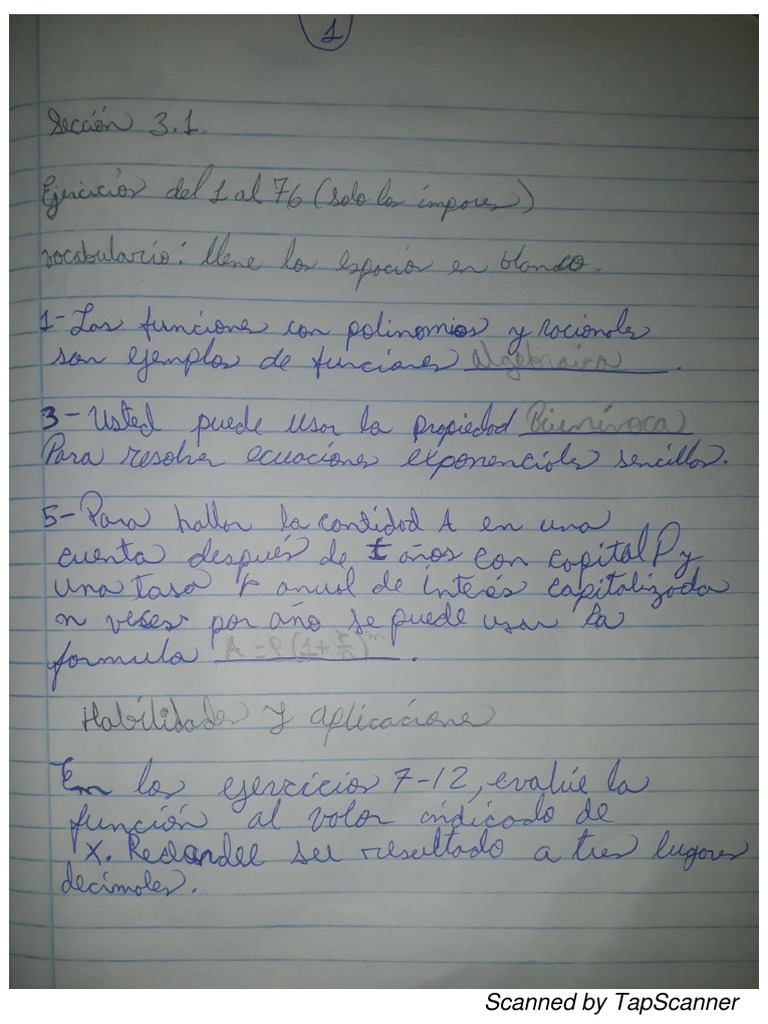 1
Sección 3.1.
Ejercicios del 1 al 76 (solo los impares)
vocabulario: llene los espacios en blanco.
1-Las funciones con polinomios y racionales
son ejemplos de funciones algebraica.
3-Usted puede usar la propiedad Biunívoca
Para resolver ecuaciones exponenciales sencillas.
5-Para hallar la cantidad A en una
cuenta después de t años con capital P y
una tasa r anual de interés capitalizada
n veces por año se puede usar la
formula A = P(1+r/n)^n.
Habilidades y aplicaciones
En los ejercicios 7-12, evalúe la
función al valor indicado de
x. Redondee su resultado a tres lugares
decimales.
Scanned by TapScanner